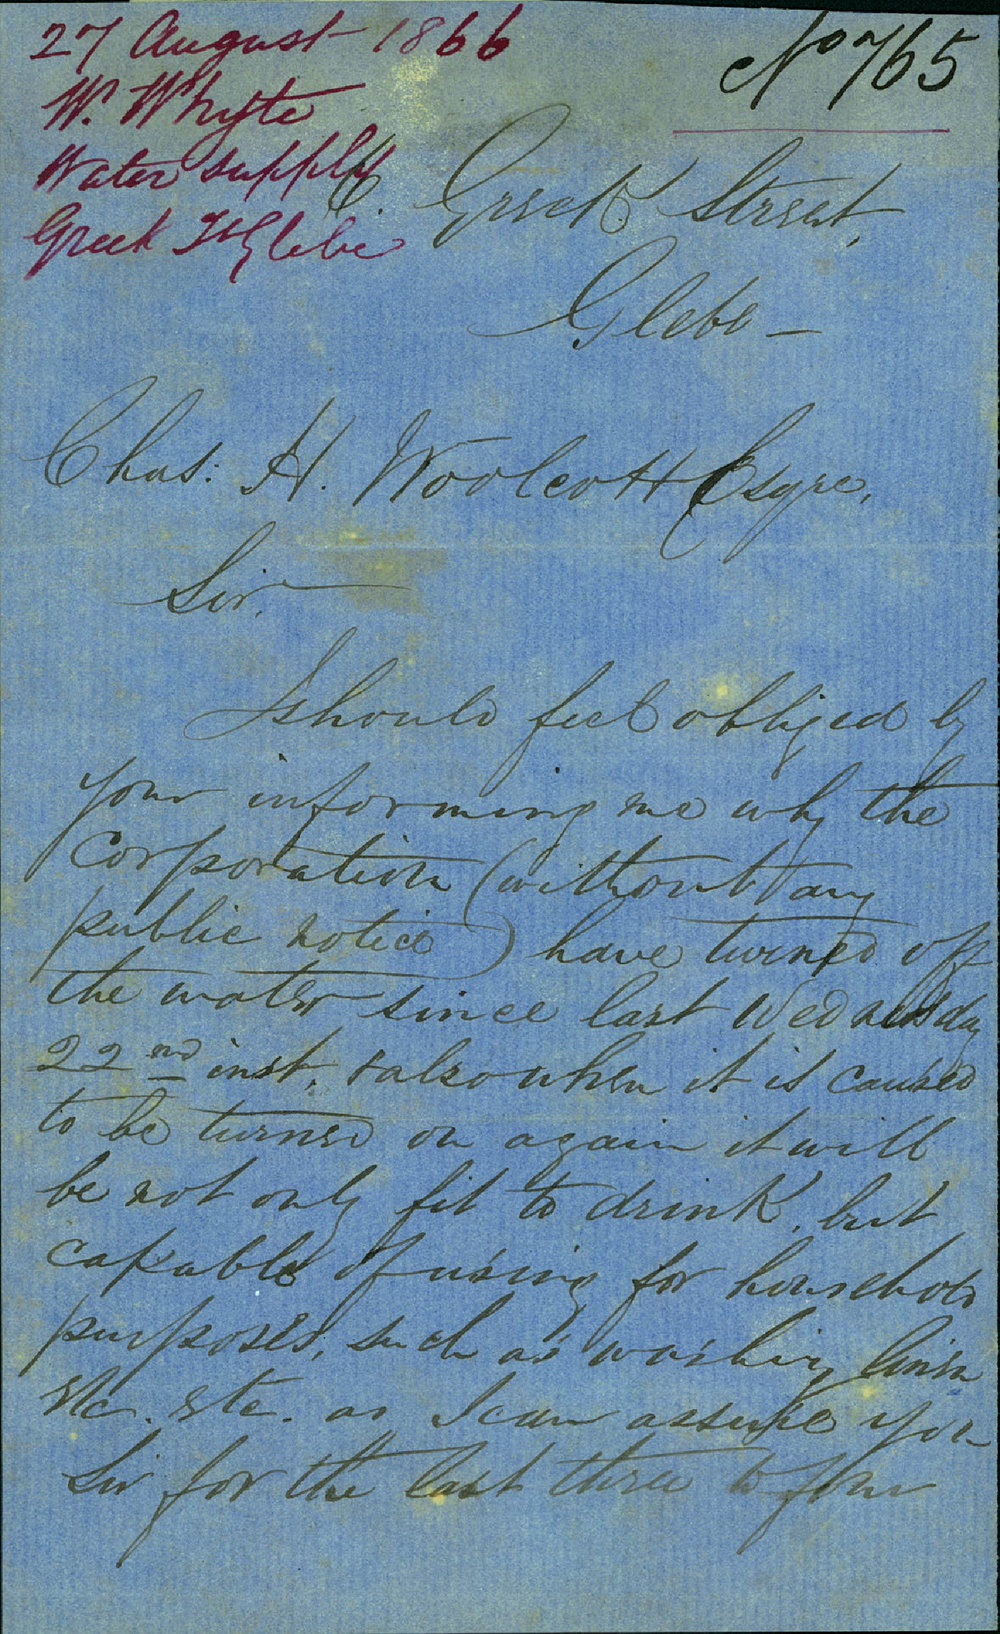 27 August 1866
W. Whyte
Water supply
Greek St Glebe
No 765
6. Greek Street,
Glebe —
Chas: H. Woolcott Esqre,
Sir,
I should feel obliged by
your informing me why the
Corporation (without any
public notice) have turned off
the water since last Wednesday
22nd inst. & also when it is caused
to be turned on again it will
be not only fit to drink, but
capable of using for household
purposes, such as washing linen
etc. etc. as I can assure you
Sir for the last three to four